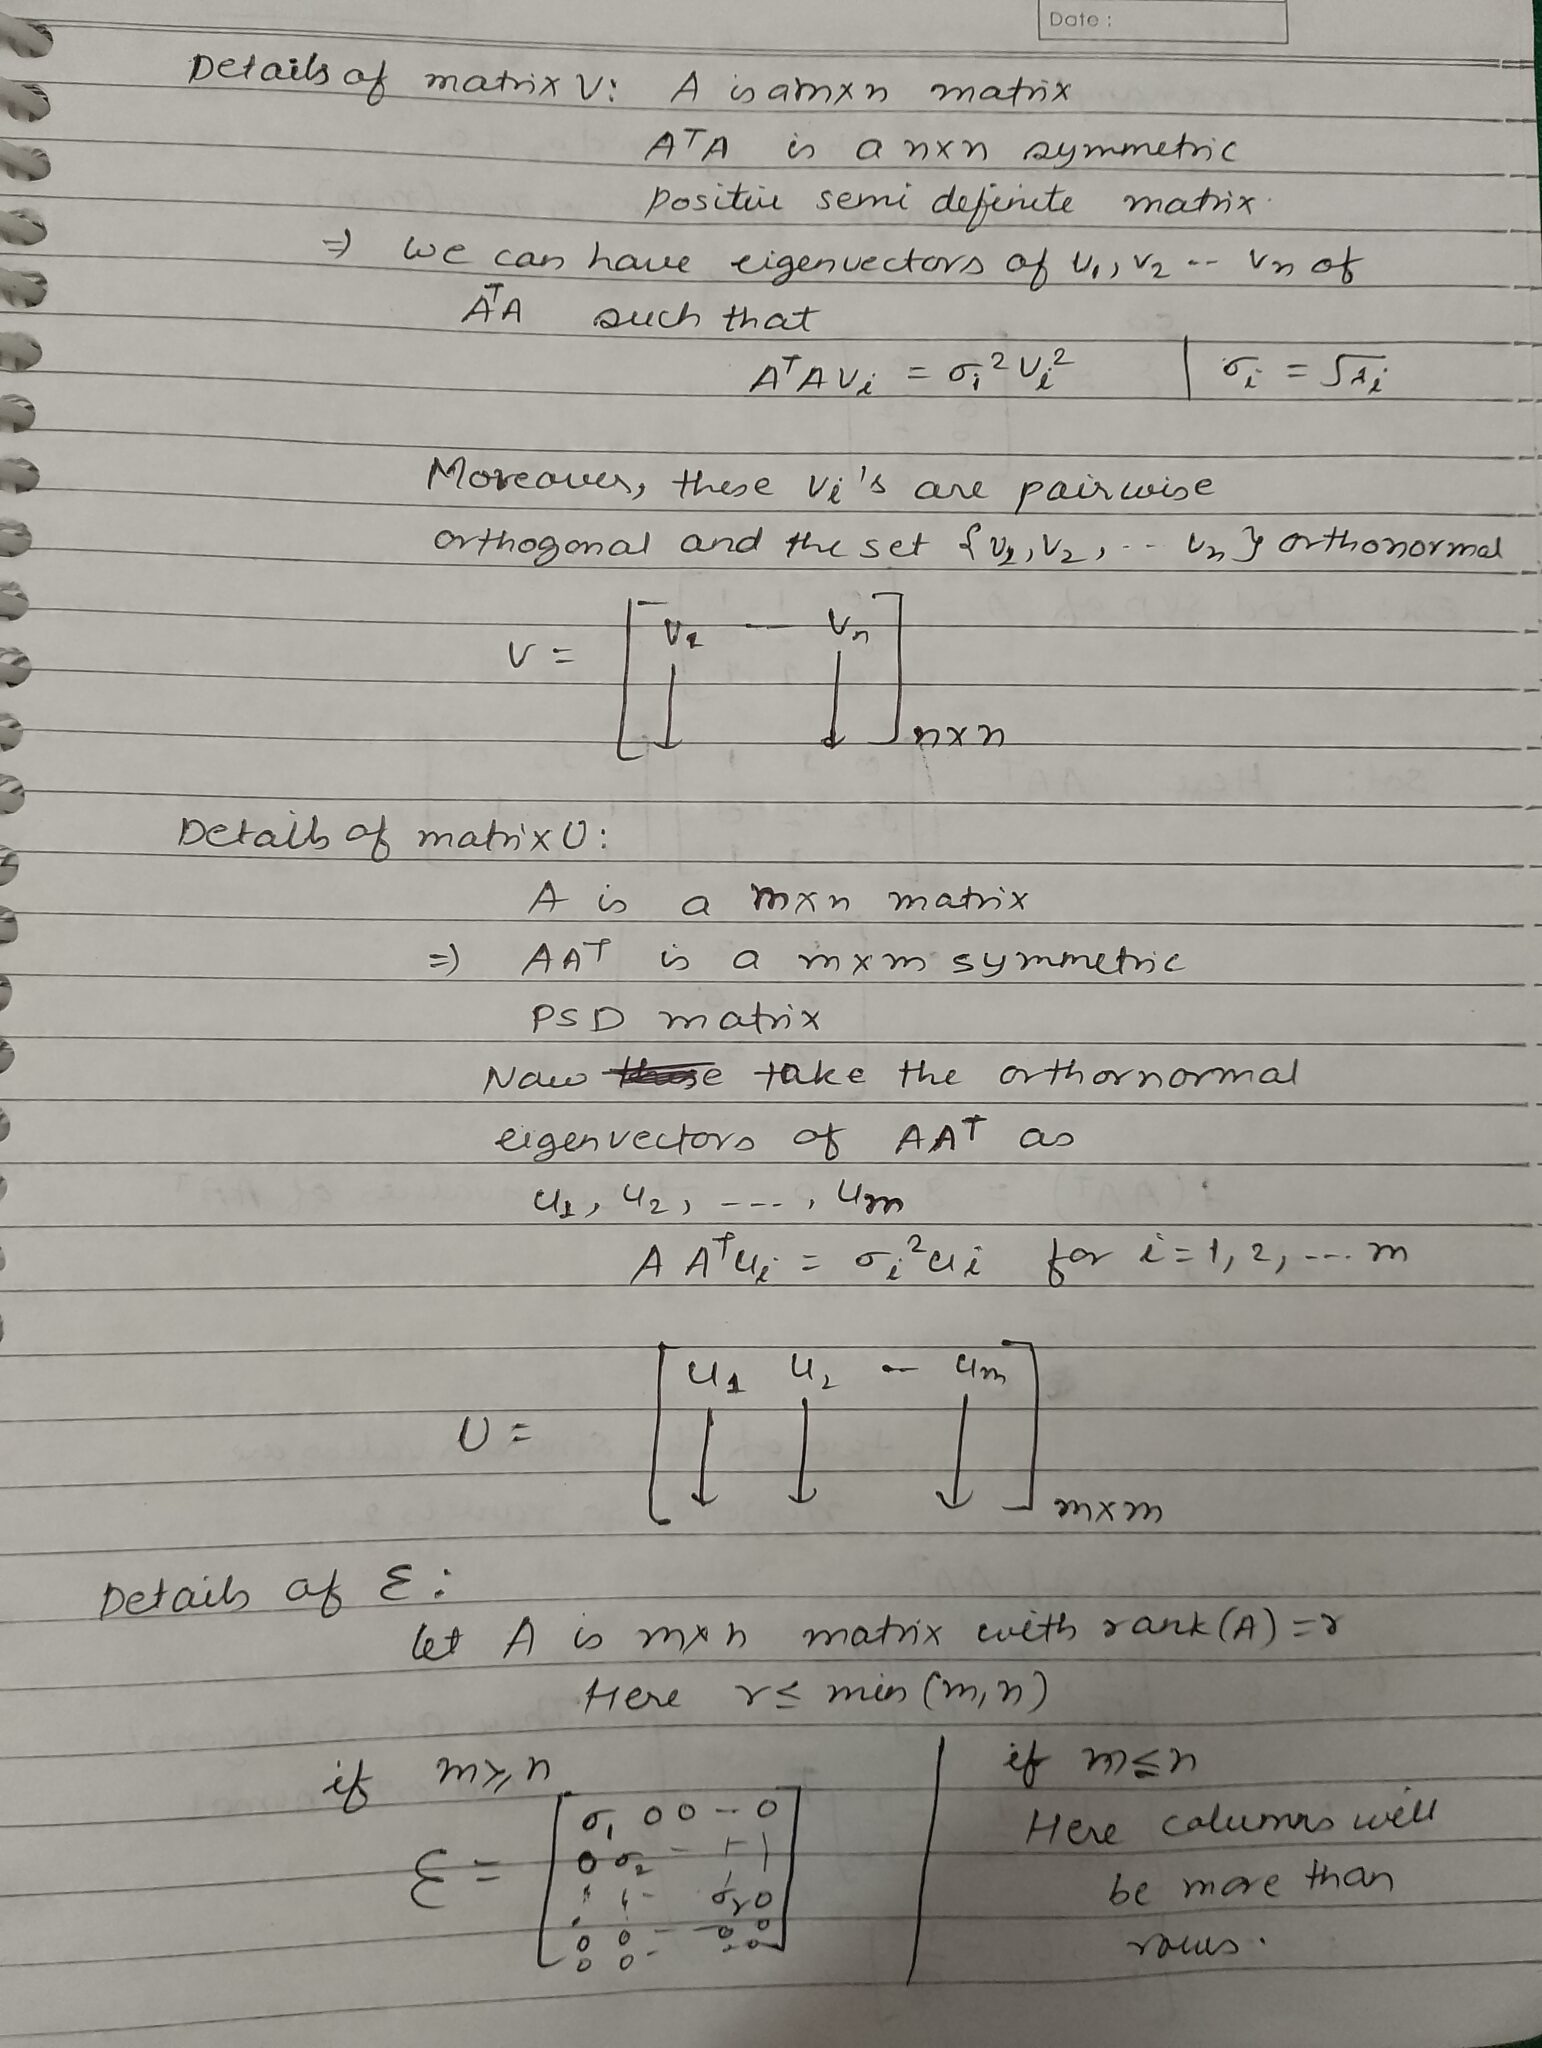 Date :
Details of matrix V: A is a mxn matrix
AᵀA is a nxn symmetric
positive semi definite matrix.
⇒ we can have eigenvectors of v₁, v₂ -- vₙ of
AᵀA such that
AᵀAvᵢ = σᵢ²vᵢ² | σᵢ = √λᵢ
Moreover, these vᵢ's are pairwise
orthogonal and the set {v₁, v₂, -- vₙ} orthonormal
V = [v₁ -- vₙ] nxn
Details of matrix U:
A is a mxn matrix
⇒ AAᵀ is a mxm symmetric
PSD matrix
Now take the orthornormal
eigenvectors of AAᵀ as
u₁, u₂, ---, uₘ
AAᵀuᵢ = σᵢ²uᵢ for i=1, 2, --- m
U = [u₁ u₂ -- uₘ] mxm
Details of Σ:
let A is mxn matrix with rank(A) = r
Here r ≤ min (m, n)
if m ≥ n
Σ = [σ₁ 0 0 -- 0
0 σ₂ -
σᵣ 0
0 0 - -- 0 0
0 0 - -- 0]
if m ≤ n
Here columns will
be more than
rows.